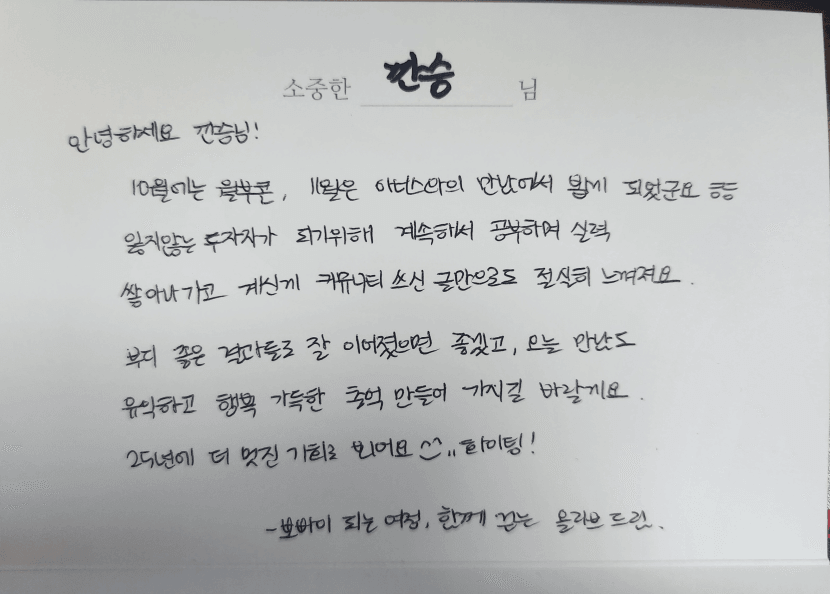 소중한 깐승 님
안녕하세요 깐승님!
10월에는 월부콘, 11월은 아너스와의 만남에서 뵙게 되었군요 ㅎㅎ
잃지않는 투자자가 되기위해 계속해서 공부하며 실력
쌓아나가고 계신게 커뮤니티 쓰신 글만으로도 절실히 느껴져요.
부디 좋은 결과들로 잘 이어졌으면 좋겠고, 오늘 만남도
유익하고 행복 가득한 추억 만들어 가지길 바랄게요.
25년에 더 멋진 기회로 뵈어요 ^^,, 파이팅!
- 뽀빠이 되는 여정, 함께 걷는 올리브 드림.